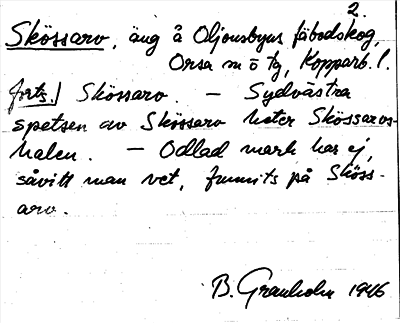 2.
Skössarv, äng å Oljonsbyns fäbodskog,
Orsa sn ö tg, Kopparb. l.
forts.| Skössarv. – Sydvästra
spetsen av Skössarv heter Skössarvs-
halen. – Odlad mark har ej,
såvitt man vet, funnits på Sköss-
arv.
B. Granholm 1946